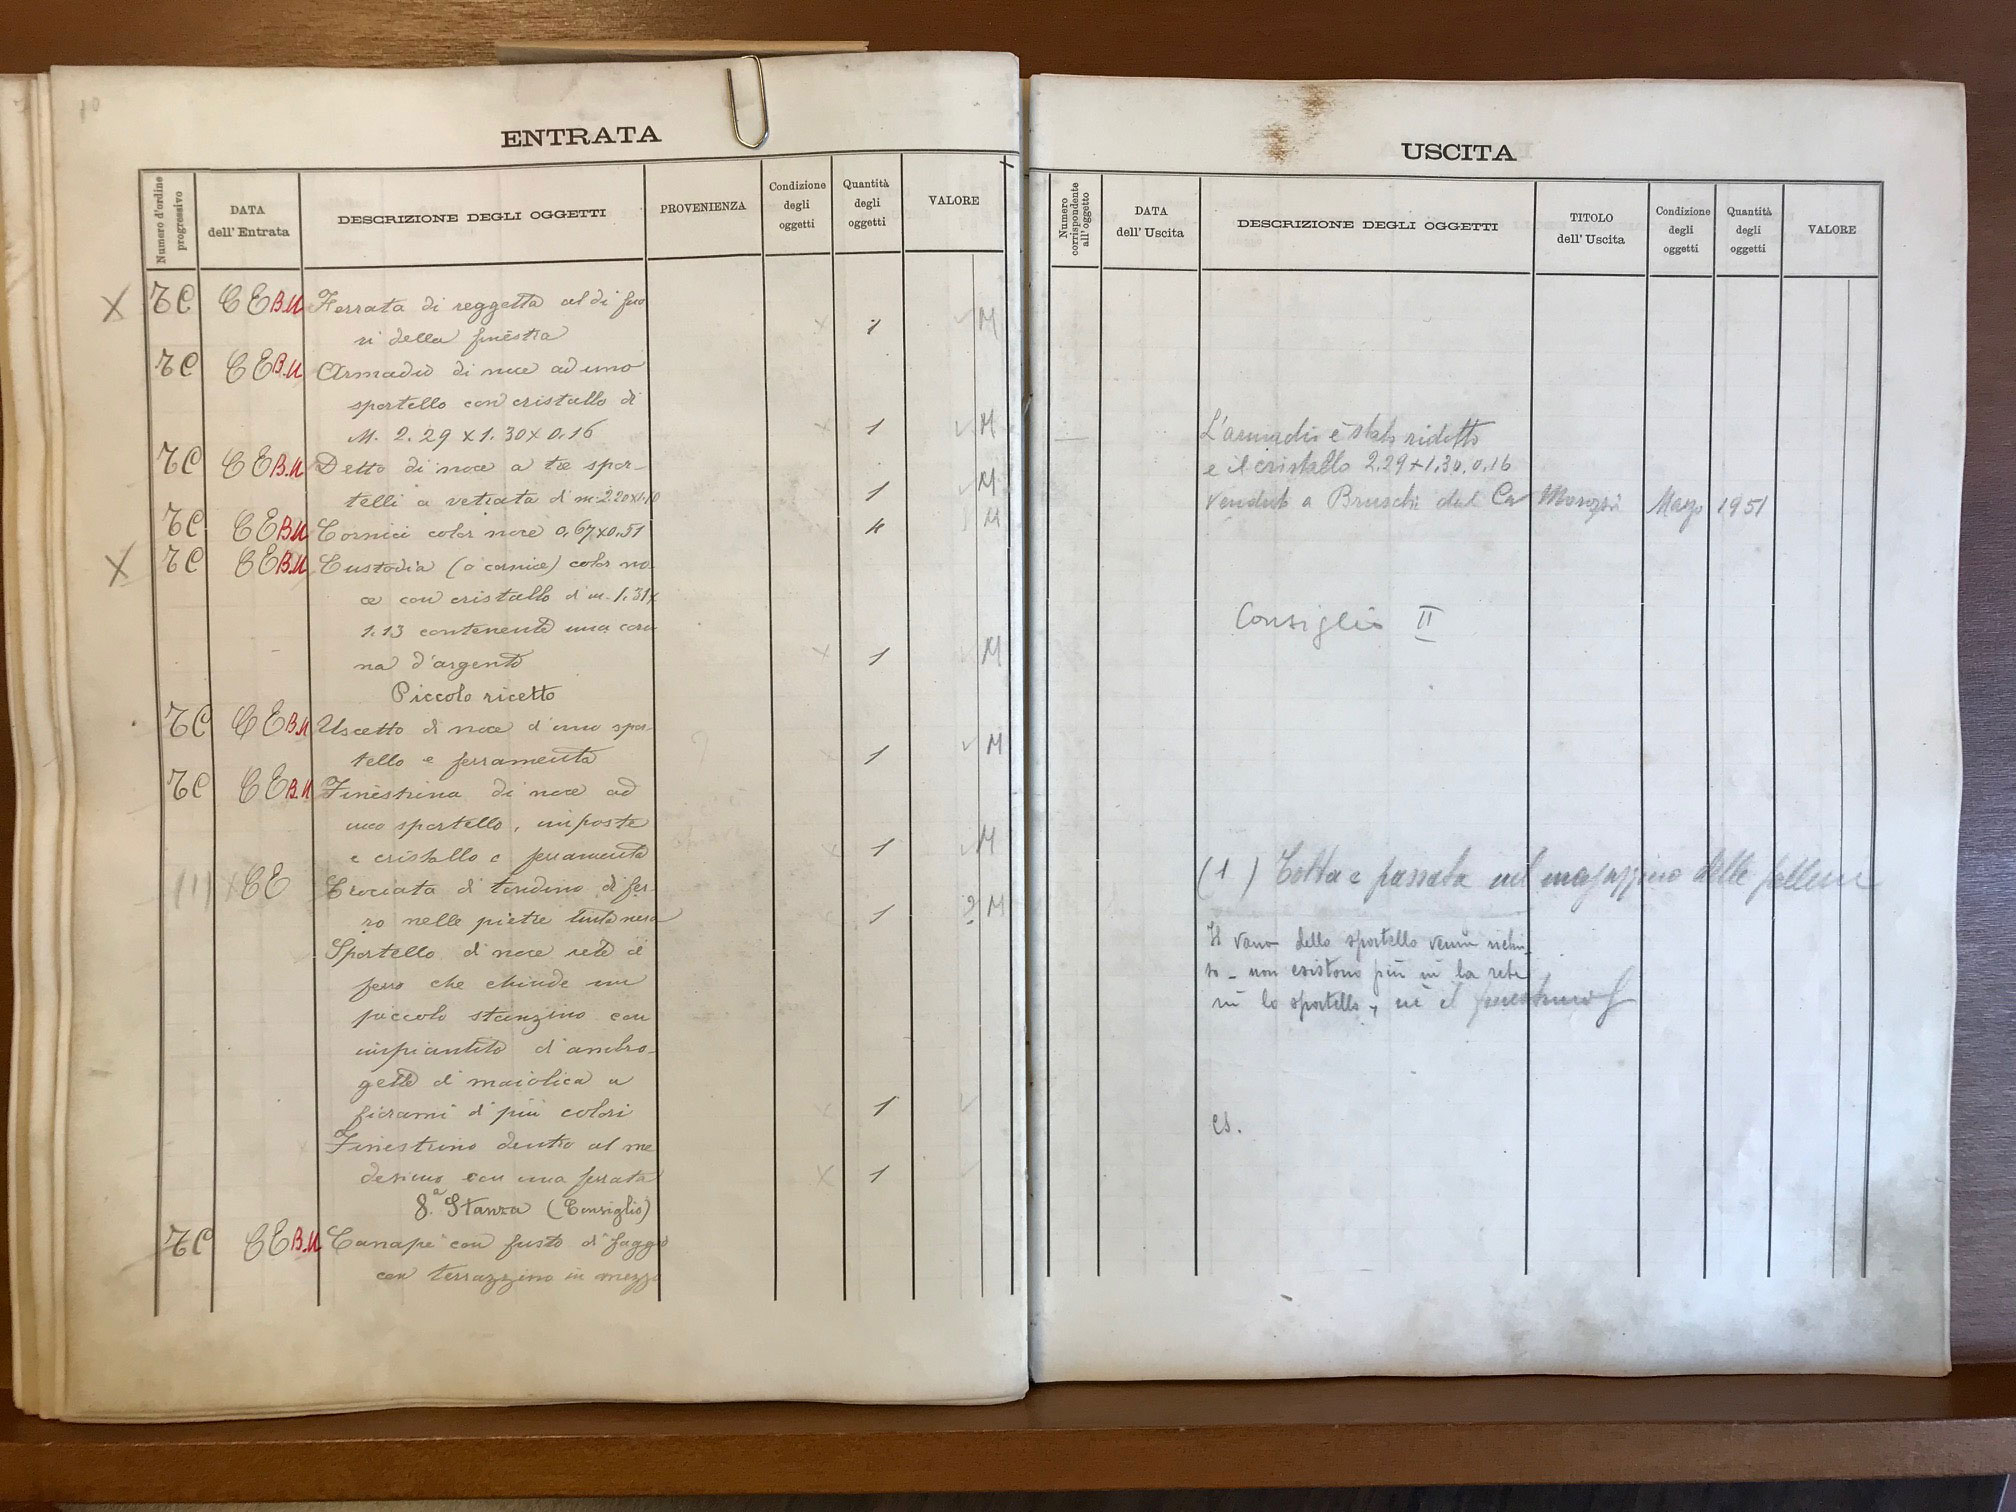 10
ENTRATA
Numero d'ordine progressivo
DATA dell' Entrata
DESCRIZIONE DEGLI OGGETTI
PROVENIENZA
Condizione degli oggetti
Quantità degli oggetti
VALORE
X TC CE B.U Ferrata di reggetta al di fuo
ri della finestra 1 M
TC CE B.U Armadio di noce ad uno
sportello con cristallo di
M. 2.29 x 1.30 x 0.16 1 M
TC CE B.U Detto di noce a tre spor-
telli a vetrata di m. 2.20x1.10 1 M
TC CE B.U Cornici color noce 0,67x0.51 4 M
X TC CE B.U Custodia (o cornice) color no
ce con cristallo di m. 1.31x
1.13 contenente una coro
na d'argento 1 M
Piccolo ricetto
TC CE B.U Uscetto di noce d'uno spor
tello e ferramenta 1 M
TC CE B.U Finestrina di noce ad
uno sportello, imposte
e cristallo e ferramenta 1 M
(1) x CE Crociata di tondino di fer
ro nelle pietre tinta nera 1 ? M
Sportello di noce rete di
ferro che chiude un
piccolo stanzino con
impiantito d'ambro-
gette di maiolica a
fiorami di più colori 1
Finestrino dentro al me
desimo con una ferrata x 1
8.a Stanza (Consiglio)
TC CE B.U Canapè con fusto di faggio
con terrazzino in mezzo
USCITA
Numero corrispondente all'oggetto
DATA dell' Uscita
DESCRIZIONE DEGLI OGGETTI
TITOLO dell' Uscita
Condizione degli oggetti
Quantità degli oggetti
VALORE
L'armadio è stato ridotto
e il cristallo 2.29+1.30.0.16
venduto a Bruschi dal Cav Morozzi Marzo 1951
Consiglio II
(1) Tolta e passata nel magazzino delle
Il vano dello sportello venne richiu
so - non esistono più nè la rete
nè lo sportello, nè il finestrino
es.